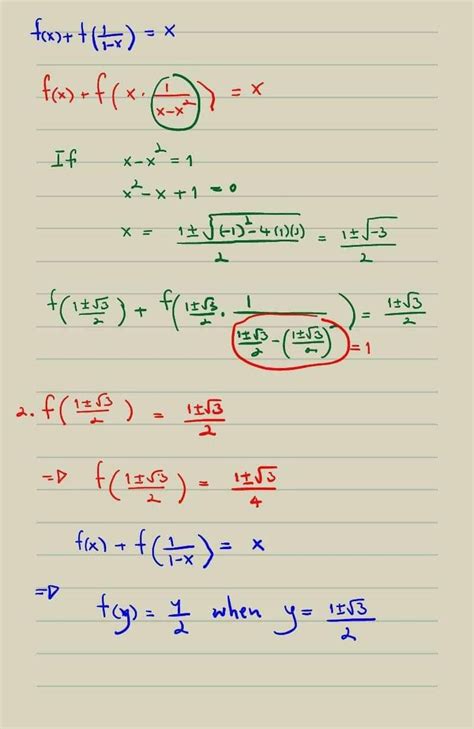 f(x) + f(1/(1-x)) = x
f(x) + f(x · 1/(x-x²)) = x
If x-x² = 1
x² - x + 1 = 0
x = (1±√((-1)²-4(1)(1)))/2 = (1±√-3)/2
f((1±√3)/2) + f((1±√3)/2 · 1/((1±√3)/2 - ((1±√3)/2)²)) = (1±√3)/2
= 1
2. f((1±√3)/2) = (1±√3)/2
⇒ f((1±√3)/2) = (1±√3)/4
f(x) + f(1/(1-x)) = x
⇒ f(y) = y/2 when y = (1±√3)/2